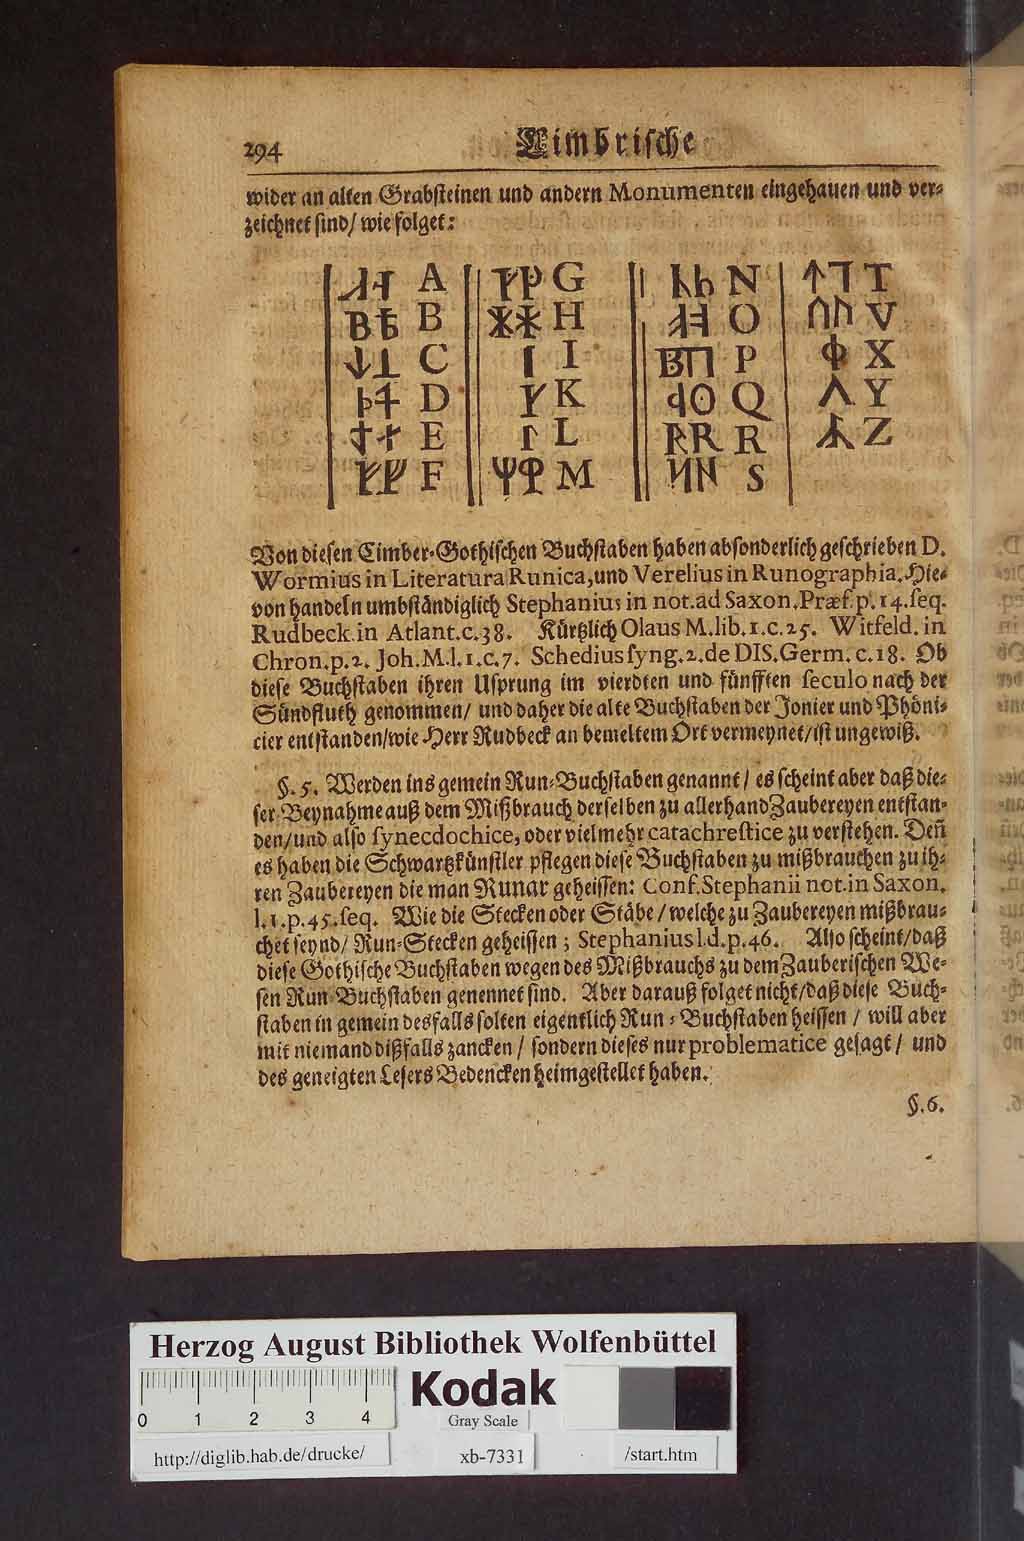 294 Cimbrische
wider an alten Grabsteinen und andern Monumenten eingehauen und ver-
zeichnet sind/ wie folget:
A G N T
B H O V
C I P X
D K Q Y
E L R Z
F M S
Von diesen Cimber-Gothischen Buchstaben haben absonderlich geschrieben D.
Wormius in Literatura Runica, und Verelius in Runographia. Hie-
von handeln umbständiglich Stephanius in not. ad Saxon. Præf. p. 14. seq.
Rudbeck. in Atlant. c. 38. Kürtzlich Olaus M. lib. 1. c. 25. Witfeld. in
Chron. p. 2. Joh. M. l. 1. c. 7. Schedius syng. 2. de DIS. Germ. c. 18. Ob
diese Buchstaben ihren Usprung im vierdten und fünfften seculo nach der
Sündfluth genommen/ und daher die alte Buchstaben der Jonier und Phöni-
cier entstanden/ wie Herr Rudbeck an bemeltem Ort vermeynet/ ist ungewiß.
§. 5. Werden ins gemein Run-Buchstaben genannt/ es scheint aber daß die-
ser Beynahme auß dem Mißbrauch derselben zu allerhand Zaubereyen entstan-
den/ und also synecdochice, oder vielmehr catachrestice zu verstehen. Deñ
es haben die Schwartzkünstler pflegen diese Buchstaben zu mißbrauchen zu ih-
ren Zaubereyen die man Runar geheissen: Conf. Stephanii not. in Saxon.
l. 1. p. 45. seq. Wie die Stecken oder Stäbe/ welche zu Zaubereyen mißbrau-
chet seynd/ Run-Stecken geheissen; Stephanius l. d. p. 46. Also scheint/ daß
diese Gothische Buchstaben wegen des Mißbrauchs zu dem Zauberischen We-
sen Run-Buchstaben genennet sind. Aber darauß folget nicht/ daß diese Buch-
staben in gemein desfalls solten eigentlich Run-Buchstaben heissen/ will aber
mit niemand dißfalls zancken/ sondern dieses nur problematice gesagt/ und
des geneigten Lesers Bedencken heimgestellet haben.
§. 6.
Herzog August Bibliothek Wolfenbüttel
0 1 2 3 4
Kodak
Gray Scale
http://diglib.hab.de/drucke/ xb-7331 /start.htm